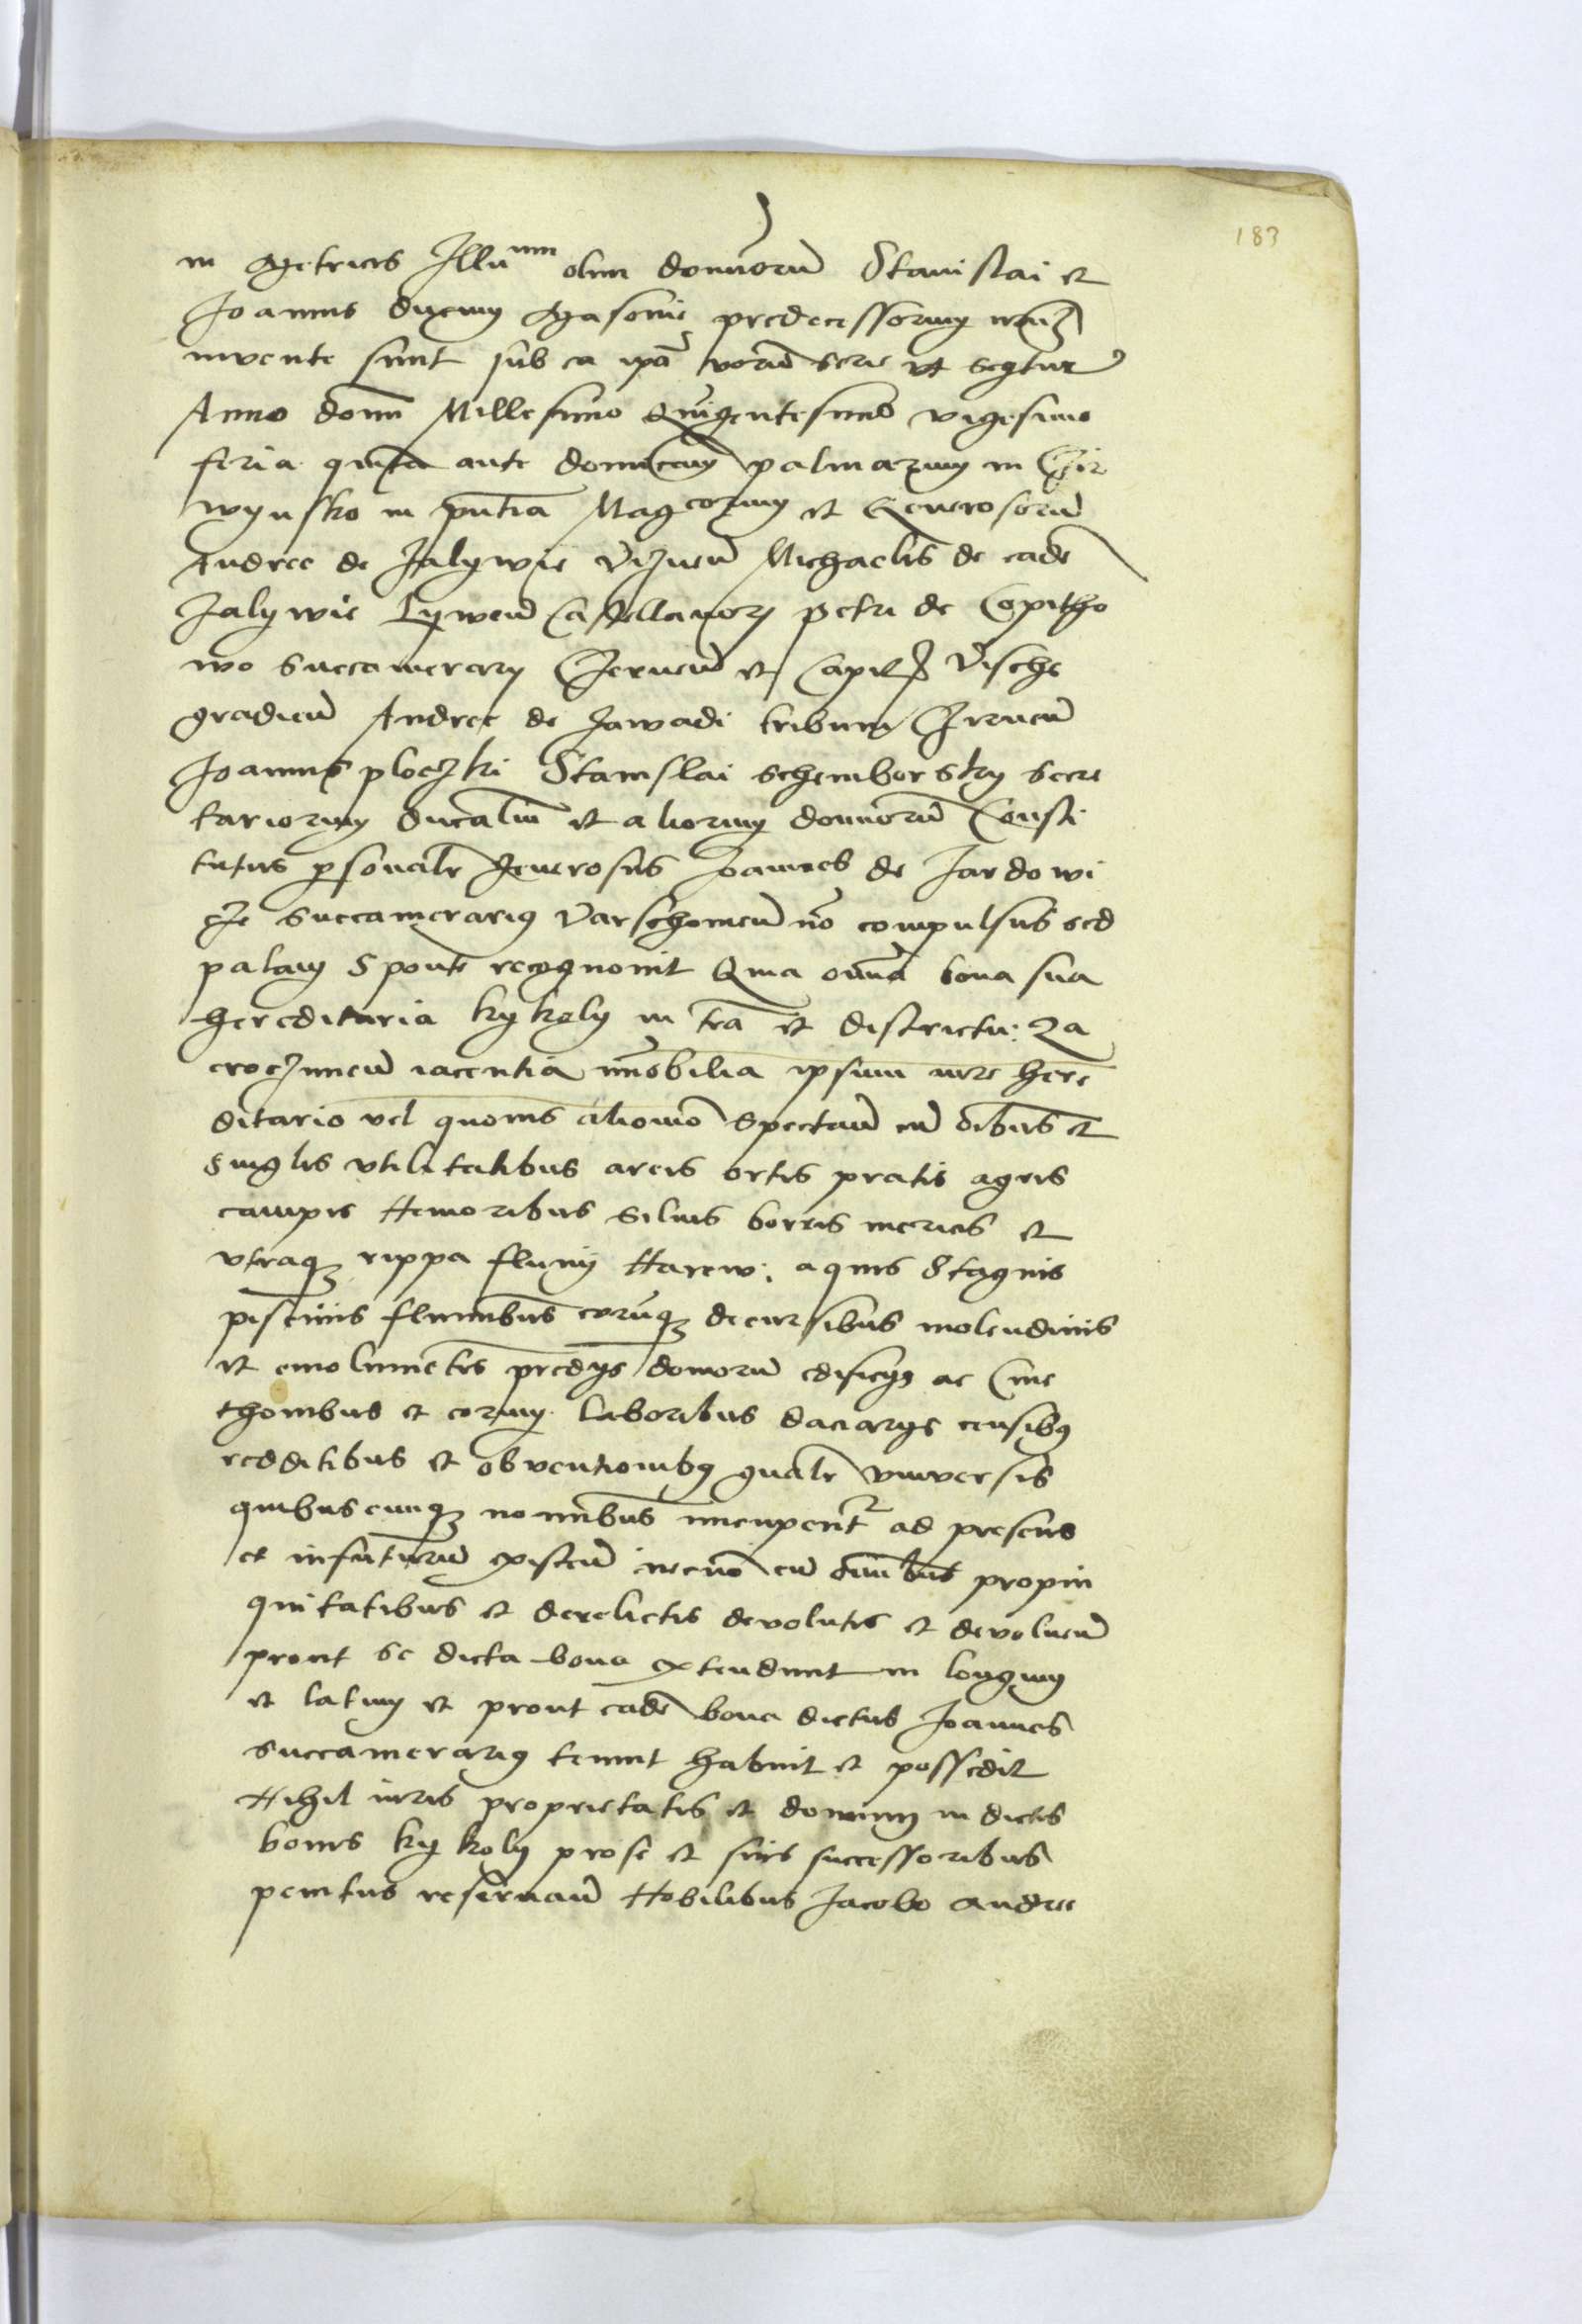 183
in Metricis Illu^mm olim dominorũ Stanislai et
Joannis ducum Masovie predecessorum nr̃oꝝ
invente sunt sub ea ipã verborũ serie vt seqtur
Anno domĩ Millesimo Quigentesimo vigesimo
feria quinta ante dominicam palmarum in Cźir
wynsko in pñtia Magcorum et Generosorũ
Andree de Zalywie Viźneñ Michaelis de eadẽ
Zalywie Lyweñ Castellanorꝫ Petri de Copitho
wo Succamerarij Cźerneñ et Capitꝫ Vische
gradieñ Andree de Zawadi tribuni Cźirneñ
Joannis ploczki Stanislai Schemborsky Secre
tariorum ducaliũ et aliorum dominorũ Consti
tutus p̱sonalr̃ Generosus Joannes de Jardowi
cze Succamerariꝰ Varschovieñ nõ compulsus sed
palam Sponte recognovit Quia oĩa bona sua
hereditaria kykoly in tr̃a et districtu: Za
croczimeñ iacentia imõbilia ipsum iure here
ditario vel quovis aliomõ Spectañ cũ oĩbus et
singlis vtilitatibus areis ortis pratis agris
campis Nemoribus Silvis borris mericis et
vtraqꝫ rippa fluvij Narew: aquis Stagnis
piscinis fluminibus eorũqꝫ decursibus molendinis
et emolimẽtis predijs domorũ edificijs ac Cme
thonibus et eorum laboribus daciarijs censibꝰ
redditibus et obventionibꝰ gñalr̃ vniversis
quibuscunqꝫ nominibus nuncupent̃ ad presens
et infuturũ existeñ necnõ cũ oĩbus propin
quitatibus et derelictis devolutis et devolueñ
prout se dicta bona extendunt in longum
et latum et prout eadẽ bona dictus Joannes
Succamerariꝰ tenuit habuit et possedit
Nihil iuris proprietatis et dominij in dictis
bonis kykoly prose et suis successoribus
penitus reservañ Nobilibus Jacobo Andree